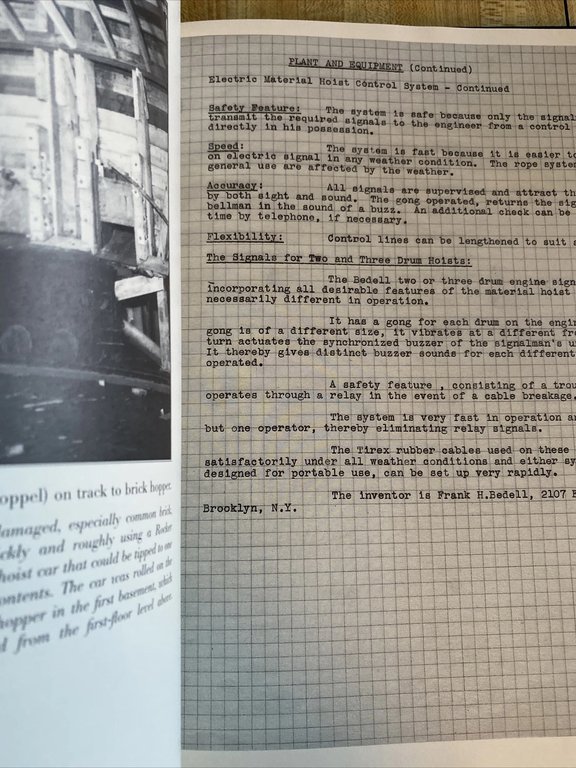 oppel) on track to brick hopper.
damaged, especially common brick
ckly and roughly using a Rocker
hoist car that could be tipped to one
ontents. The car was rolled on the
hopper in the first basement, which
d from the first-floor level above.
PLANT AND EQUIPMENT (Continued)
Electric Material Hoist Control System - Continued
Safety Feature: The system is safe because only the signal
transmit the required signals to the engineer from a control
directly in his possession.
Speed: The system is fast because it is easier to
on electric signal in any weather condition. The rope system
general use are affected by the weather.
Accuracy: All signals are supervised and attract th
by both sight and sound. The gong operated, returns the sig
bellman in the sound of a buzz. An additional check can be
time by telephone, if necessary.
Flexibility: Control lines can be lengthened to suit a
The Signals for Two and Three Drum Hoists:
The Bedell two or three drum engine sign
incorporating all desirable features of the material hoist
necessarily different in operation.
It has a gong for each drum on the engin
gong is of a different size, it vibrates at a different fre
turn actuates the synchronized buzzer of the signalman's u
It thereby gives distinct buzzer sounds for each different
operated.
A safety feature , consisting of a trou
operates through a relay in the event of a cable breakage.
The system is very fast in operation a
but one operator, thereby eliminating relay signals.
The Tirex rubber cables used on these
satisfactorily under all weather conditions and either sy
designed for portable use, can be set up very rapidly.
The inventor is Frank H.Bedell, 2107
Brooklyn, N.Y.